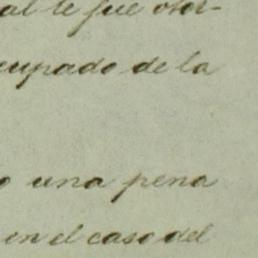 al le fue otor-
cupado de la
o una pena
en el caso del